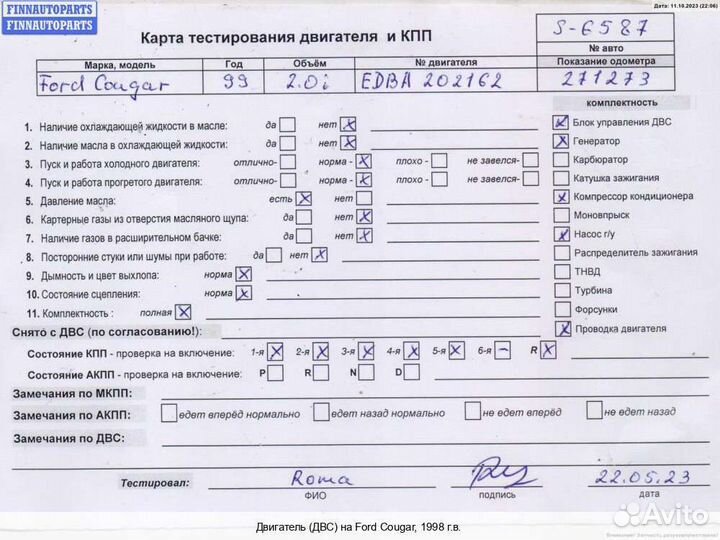 Дата: 11.10.2023 (22:06)
FINNAUTOPARTS
FINNAUTOPARTS
Карта тестирования двигателя и КПП
S-6587
№ авто
Марка, модель Год Объём № двигателя Показание одометра
Ford Cougar 99 2.0i EDBA 202162 271273
комплектность
1. Наличие охлаждающей жидкости в масле: да нет X
2. Наличие масла в охлаждающей жидкости: да нет X
3. Пуск и работа холодного двигателя: отлично- норма - X плохо - не завелся-
4. Пуск и работа прогретого двигателя: отлично- норма - X плохо - не завелся-
5. Давление масла: есть X нет
6. Картерные газы из отверстия масляного щупа: да нет X
7. Наличие газов в расширительном бачке: да нет X
8. Посторонние стуки или шумы при работе: да нет X
9. Дымность и цвет выхлопа: норма X
10. Состояние сцепления: норма X
11. Комплектность : полная X
X Блок управления ДВС
X Генератор
Карбюратор
Катушка зажигания
X Компрессор кондиционера
Моновпрыск
X Насос г/у
Распределитель зажигания
ТНВД
Турбина
Форсунки
X Проводка двигателя
Снято с ДВС (по согласованию!):
Состояние КПП - проверка на включение: 1-я X 2-я X 3-я X 4-я X 5-я X 6-я – R X
Состояние АКПП - проверка на включение: P R N D
Замечания по МКПП:
Замечания по АКПП: едет вперёд нормально едет назад нормально не едет вперёд не едет назад
Замечания по ДВС:
Тестировал: Roma 22.05.23
ФИО подпись дата
Avito
Двигатель (ДВС) на Ford Cougar, 1998 г.в.